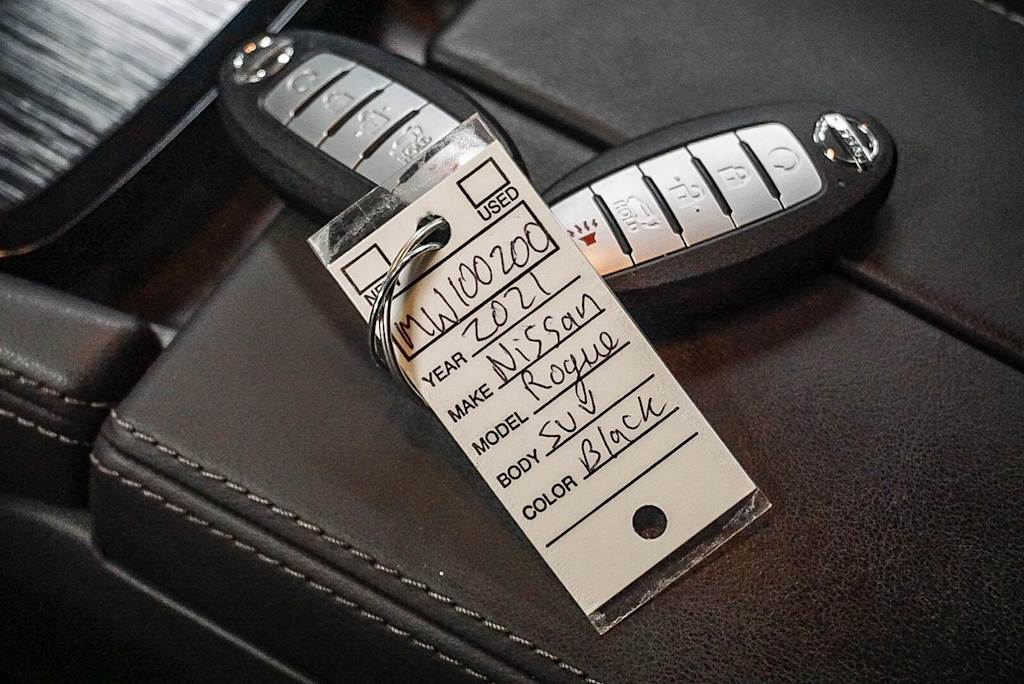 USED
NEW
MW100200
YEAR 2021
MAKE Nissan
MODEL Rogue
BODY SUV
COLOR Black
HOLD
HOLD